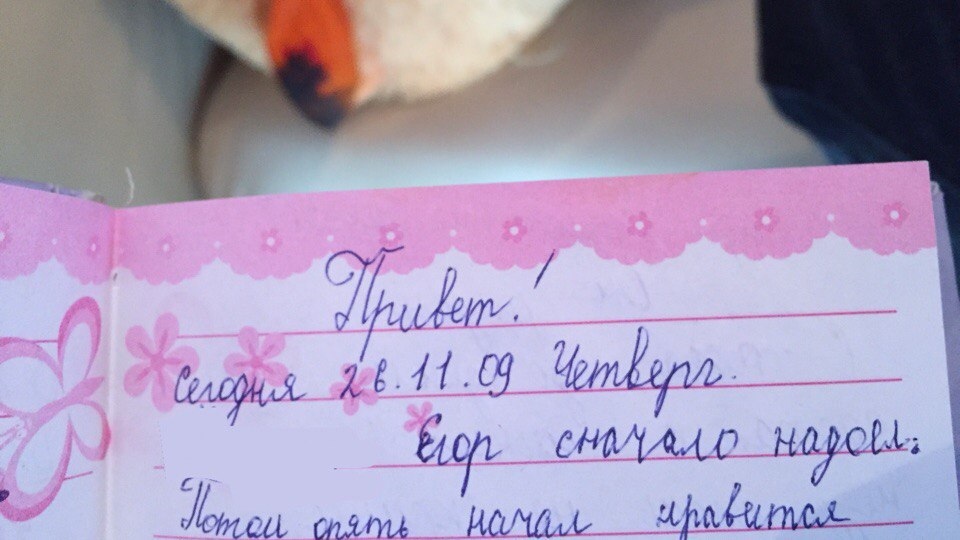 Привет!
Сегодня 26.11.09 Четверг.
Егор сначало надоел.
Потом опять начал нравится